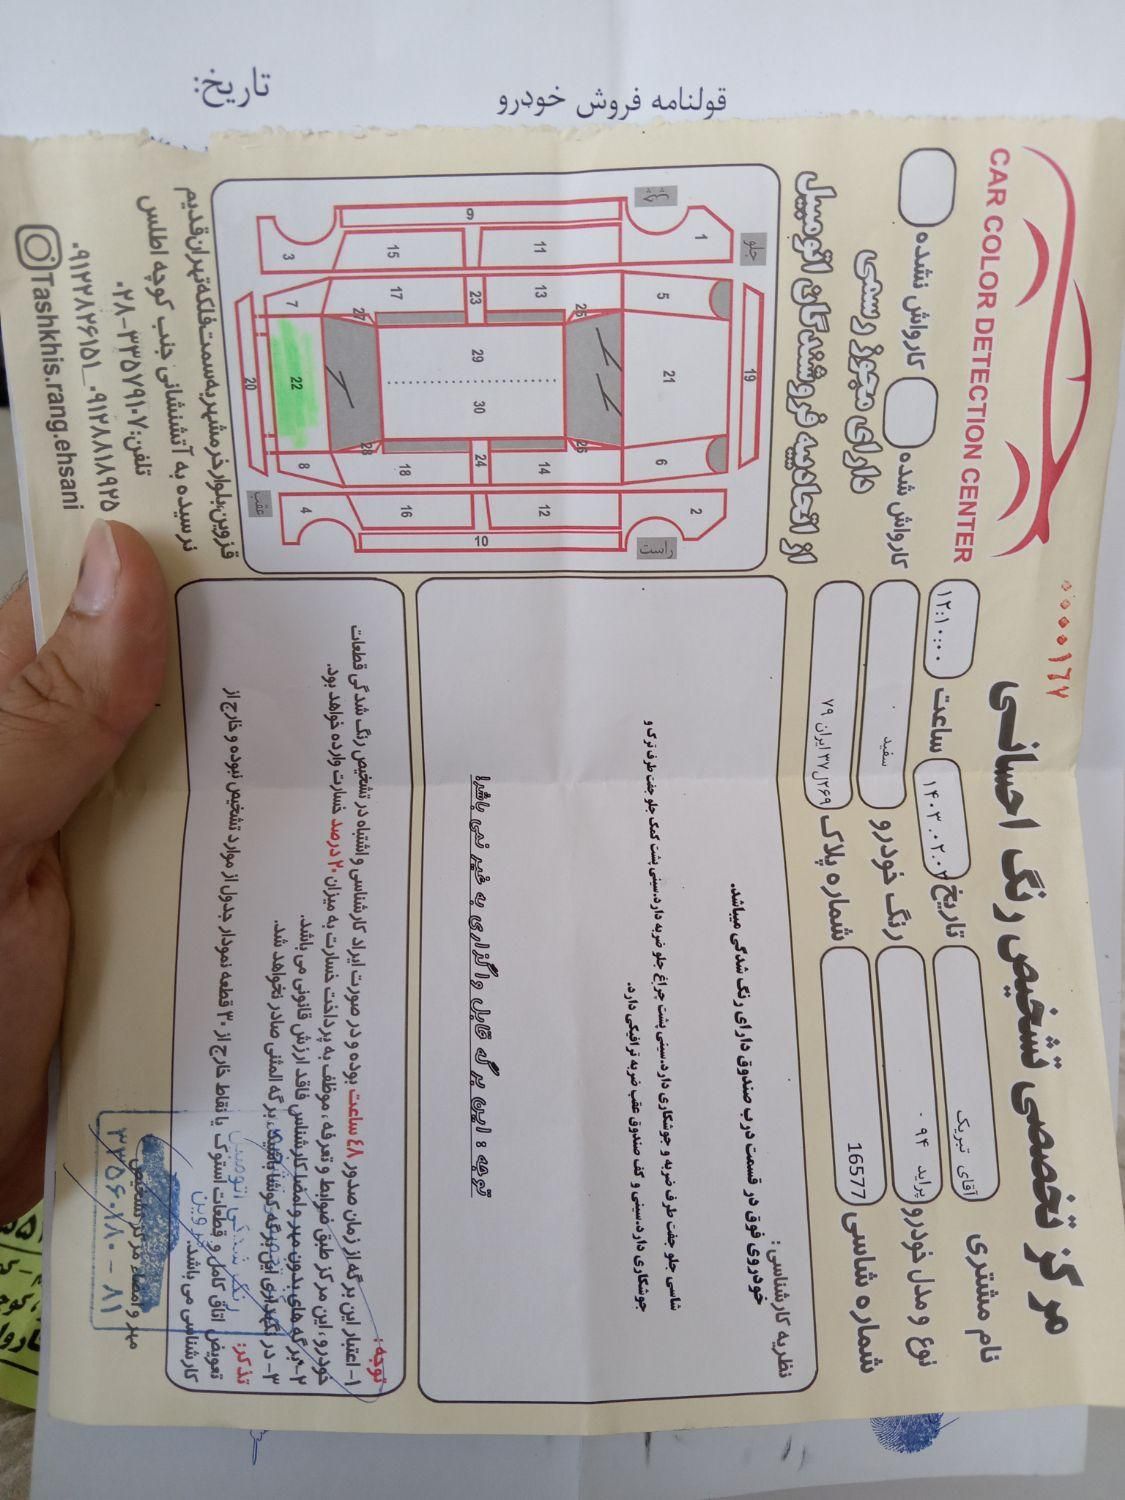 قولنامه فروش خودرو
تاریخ:
۰۰۰۰۱۶۷
مرکز تخصصی تشخیص رنگ احسانی
CAR COLOR DETECTION CENTER
نام مشتری آقای تبریک
تاریخ ۱۴۰۳.۰۲.۰۲
ساعت ۱۲:۱۰:۰۰
نوع و مدل خودرو پراید ۹۴
رنگ خودرو سفید
شماره شاسی 16577
شماره پلاک ۲۶۹ل۳۷ ایران ۷۹
کارواش شده
کارواش نشده
دارای مجوز رسمی
از اتحادیه فروشندگان اتومبیل
جلو
چپ
راست
عقب
1
2
3
4
5
6
7
8
9
10
11
12
13
14
15
16
17
18
19
20
21
22
23
24
25
26
27
28
29
30
نظریه کارشناسی :
خودروی فوق در قسمت درب صندوق دارای رنگ شدگی میباشد.
شاسی جلو جفت طرف ضربه و جوشکاری دارد.سینی پشت چراغ جلو ضربه دارد.سینی پشت کمک جلو جفت طرف ترک و
جوشکاری دارد.سینی و کف صندوق عقب ضربه ترافیکی دارد.
توجه : این برگه قابل واگذاری به غیر نمی باشد!
توجه :
۱- اعتبار این برگه از زمان صدور ۴۸ ساعت بوده و در صورت ایراد کارشناسی و اشتباه در تشخیص رنگ شدگی قطعات
خودرو، این مرکز طبق ضوابط و تعرفه، موظف به پرداخت خسارت به میزان ۲۰ درصد خسارت وارده خواهد بود.
۲- برگه های بدون مهر و امضا کارشناس فاقد ارزش قانونی می باشد.
۳- در نگهداری این برگه کوشا باشید، برگه المثنی صادر نخواهد شد.
تذکر:
تعویض اتاق کامل و قطعات استوک یا نقاط خارج از ۳۰ قطعه نمودار جدول از موارد تشخیص نبوده و خارج از
کارشناسی می باشد.
مهر و امضاء مرکز تشخیص
۳۳۵۶۰۱۸۰ - ۸۱
قزوین،بلوار خرمشهر به سمت فلکه تهران قدیم
نرسیده به آتشنشانی جنب کوچه اطلس
تلفن:۰۲۸-۳۳۵۷۹۱۰۷
۰۹۱۲۲۸۲۶۱۵۱_۰۹۱۲۸۸۱۸۹۲۵
Tashkhis.rang.ehsani